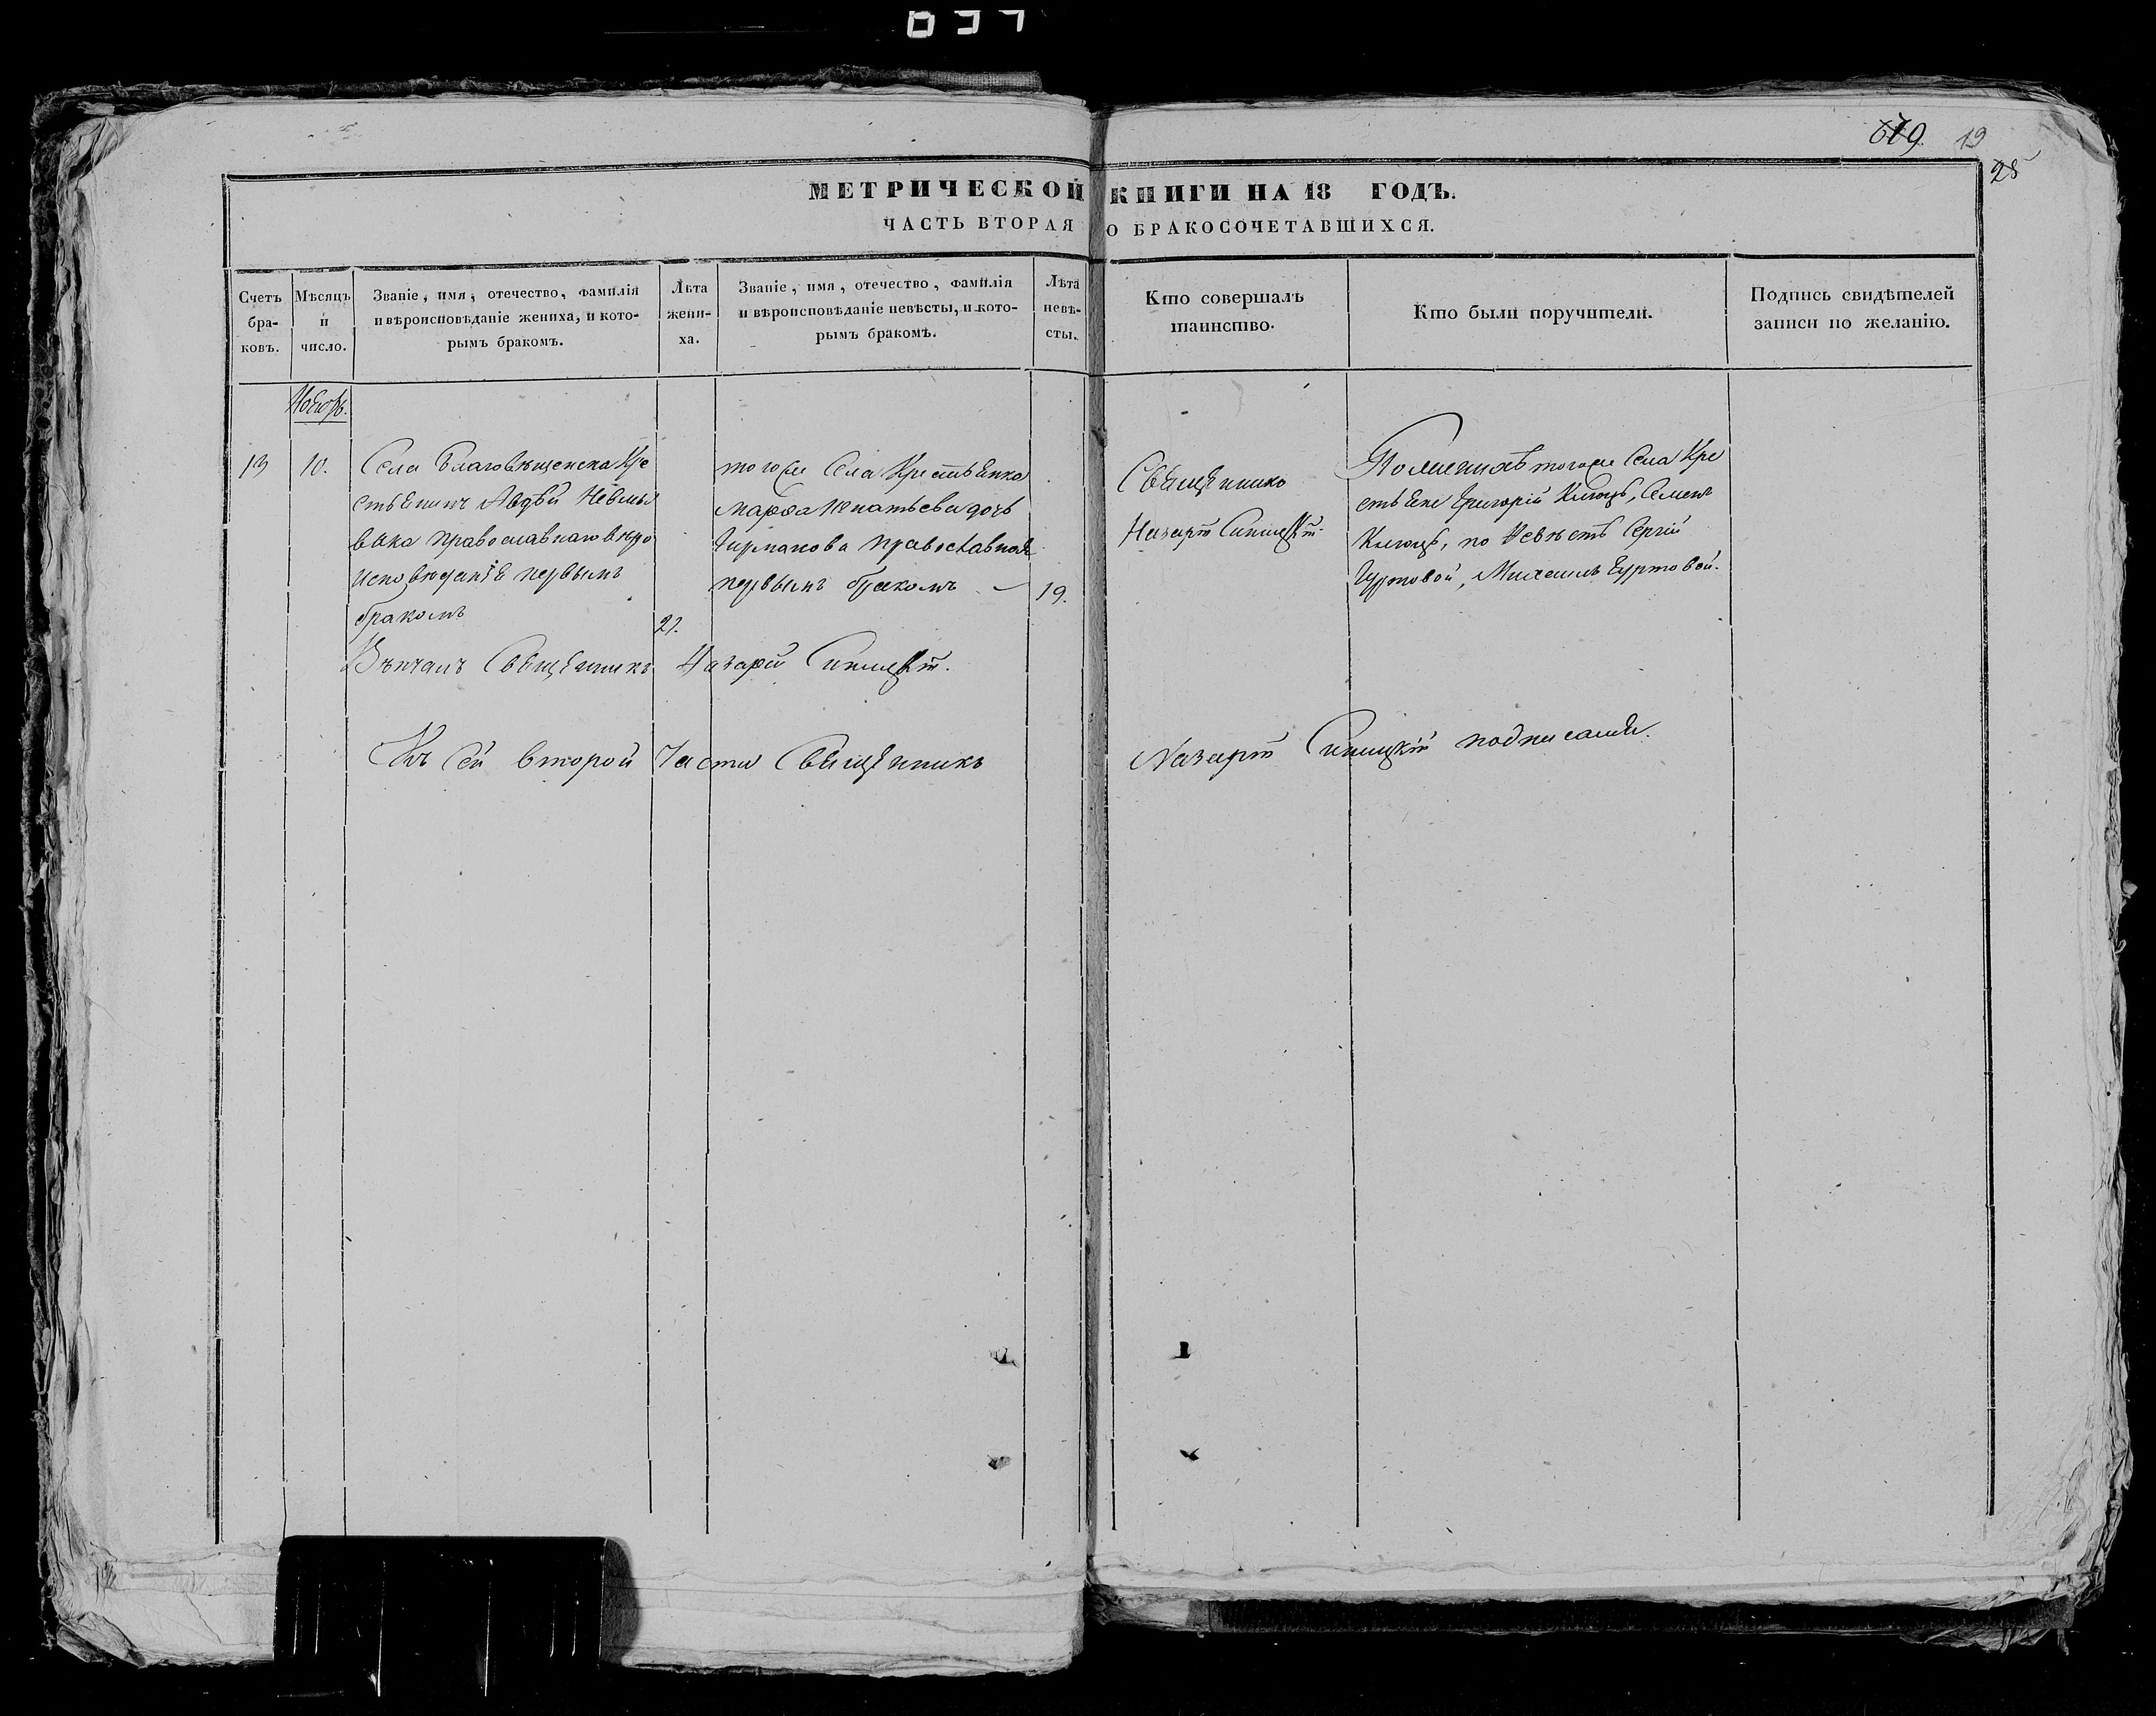 037
679. 19
28
МЕТРИЧЕСКОЙ КНИГИ НА 18 ГОДЪ.
ЧАСТЬ ВТОРАЯ О БРАКОСОЧЕТАВШИХСЯ.
Счетъ бра-
ковъ.
Мѣсяцъ
и
число.
Званіе, имя, отечество, фамилія
и вѣроисповѣданіе жениха, и кото-
рымъ бракомъ.
Лѣта
жени-
ха.
Званіе, имя, отечество, фамилія
и вѣроисповѣданіе невѣсты, и кото-
рымъ бракомъ.
Лѣта
невѣ-
сты.
Кто совершалъ
таинство.
Кто были поручители.
Подпись свидѣтелей
записи по желанію.
Ноябрь.
13
10.
Села Благовѣщенска Кре
стьянинъ Авдѣй
православнаго вѣро
исповѣданія первымъ
бракомъ
21.
тогоже Села Крестьянка
Марѳа Игнатьева дочь
православная
первымъ бракомъ
19.
Священникъ
Назарій Синицкій.
По женихѣ тогоже Села Кре
стьяне Григорій Семенъ
по Невѣстѣ Сергій
Гуртовой, Михаилъ Гуртовой.
Вѣнчалъ Священникъ Назарій Синицкій.
Къ сей второй Части Священникъ Назарій Синицкій подписался.